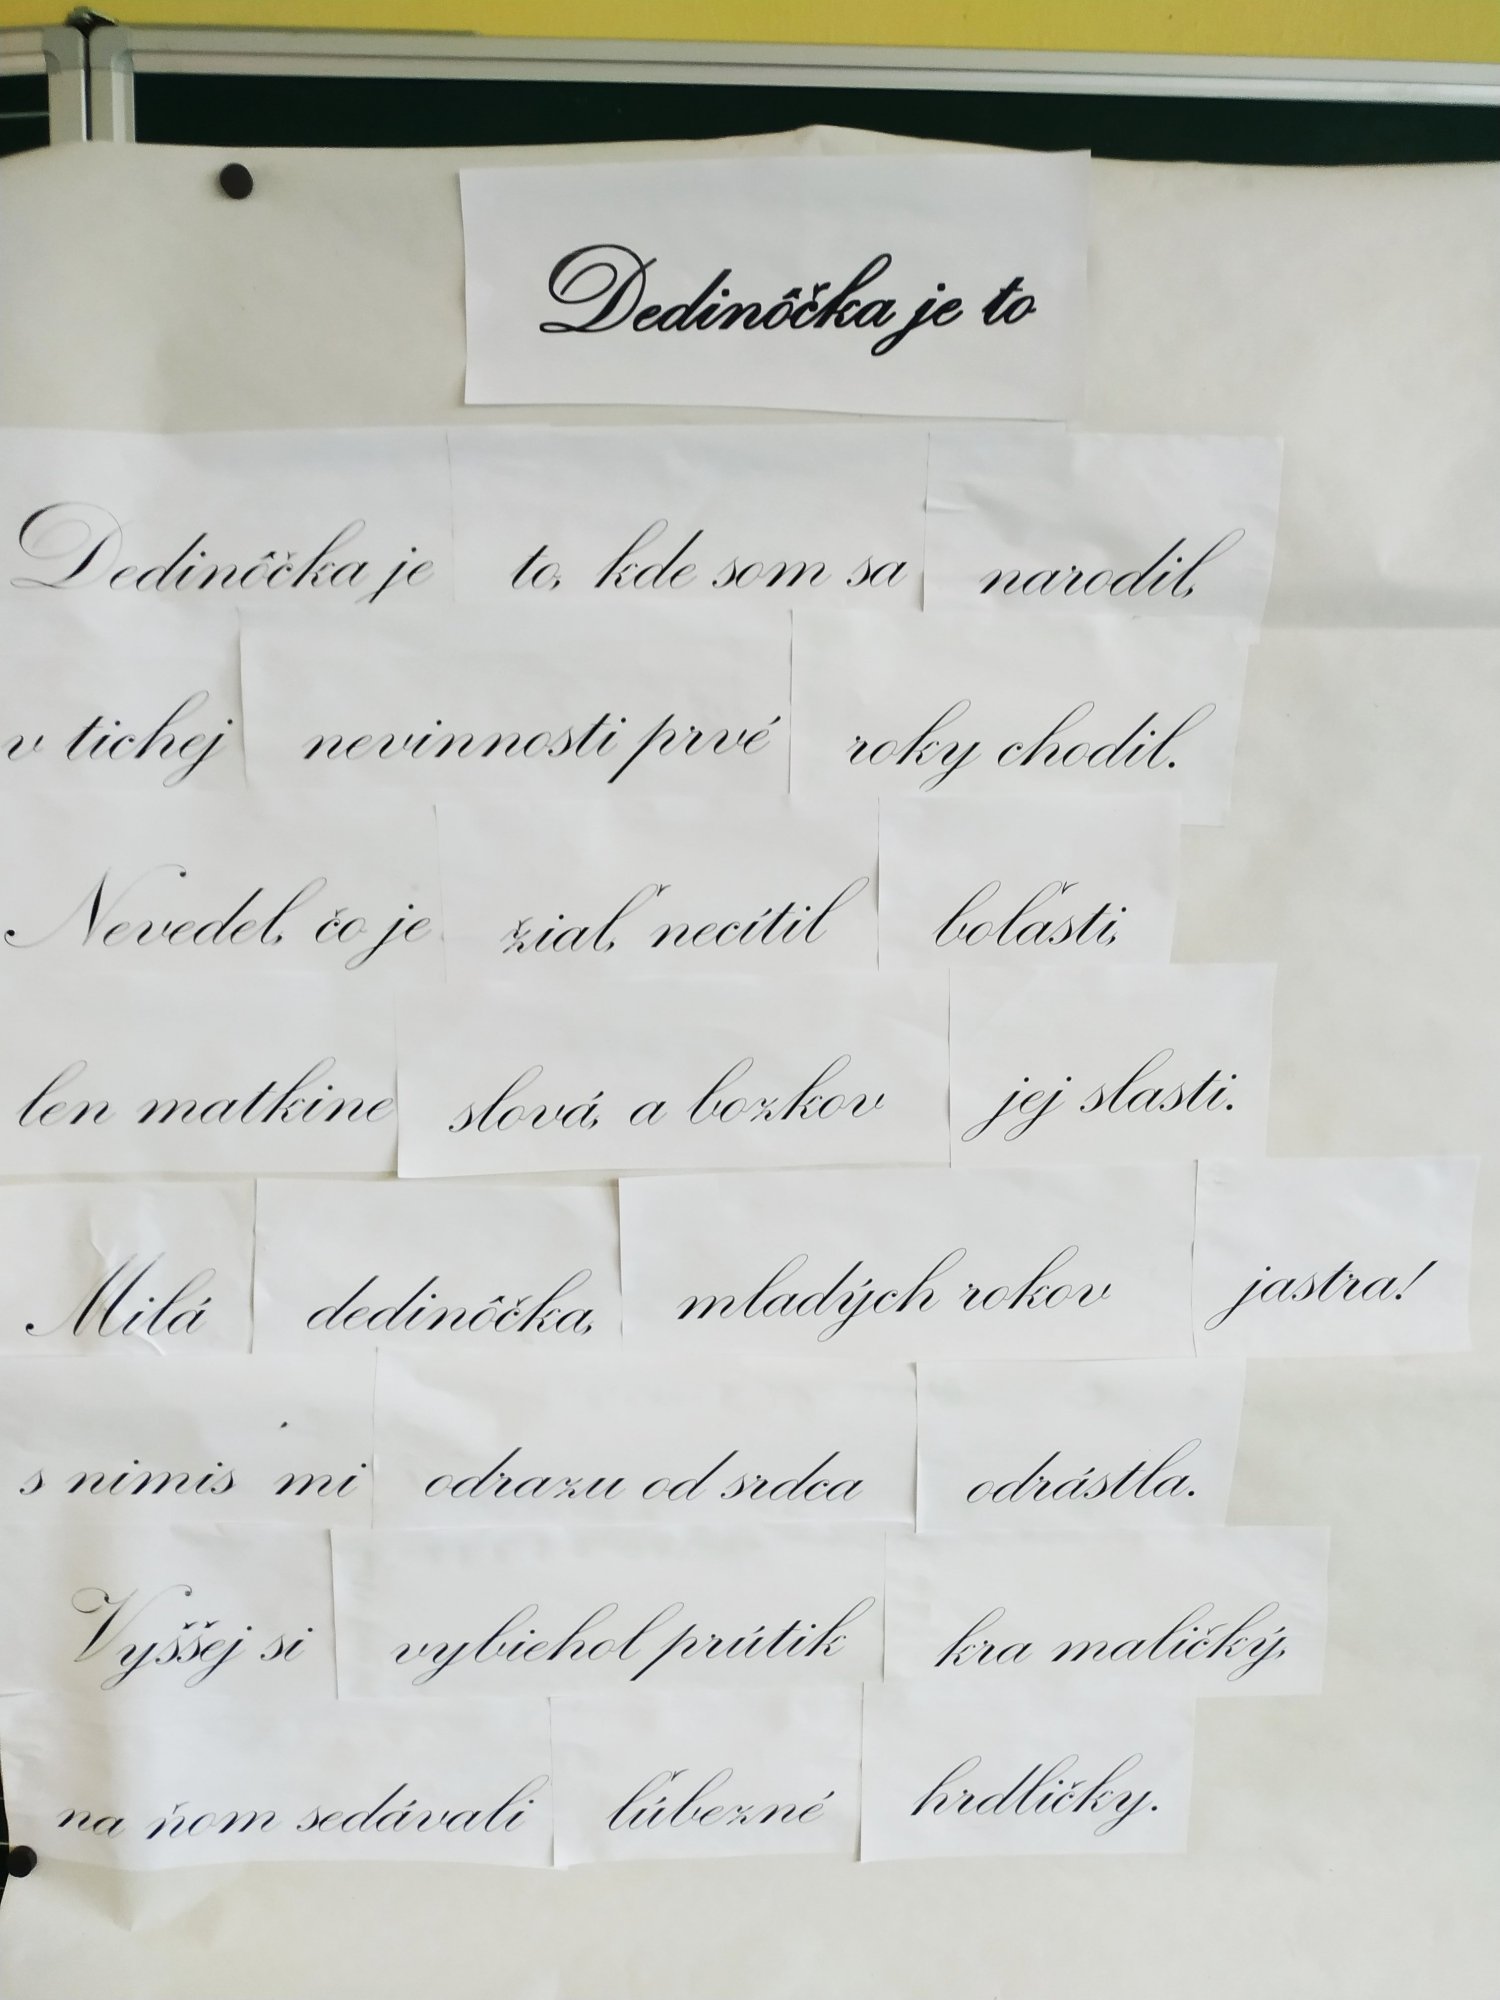 Dedinôčka je to
Dedinôčka je to, kde som sa narodil,
v tichej nevinnosti prvé roky chodil.
Nevedel, čo je žiaľ, necítil boľasti,
len matkine slová, a bozkov jej slasti.
Milá dedinôčka, mladých rokov jastra!
s nimis mi odrazu od srdca odrástla.
Vyššej si vybiehol prútik kra maličký,
na ňom sedávali ľúbezné hrdličky.